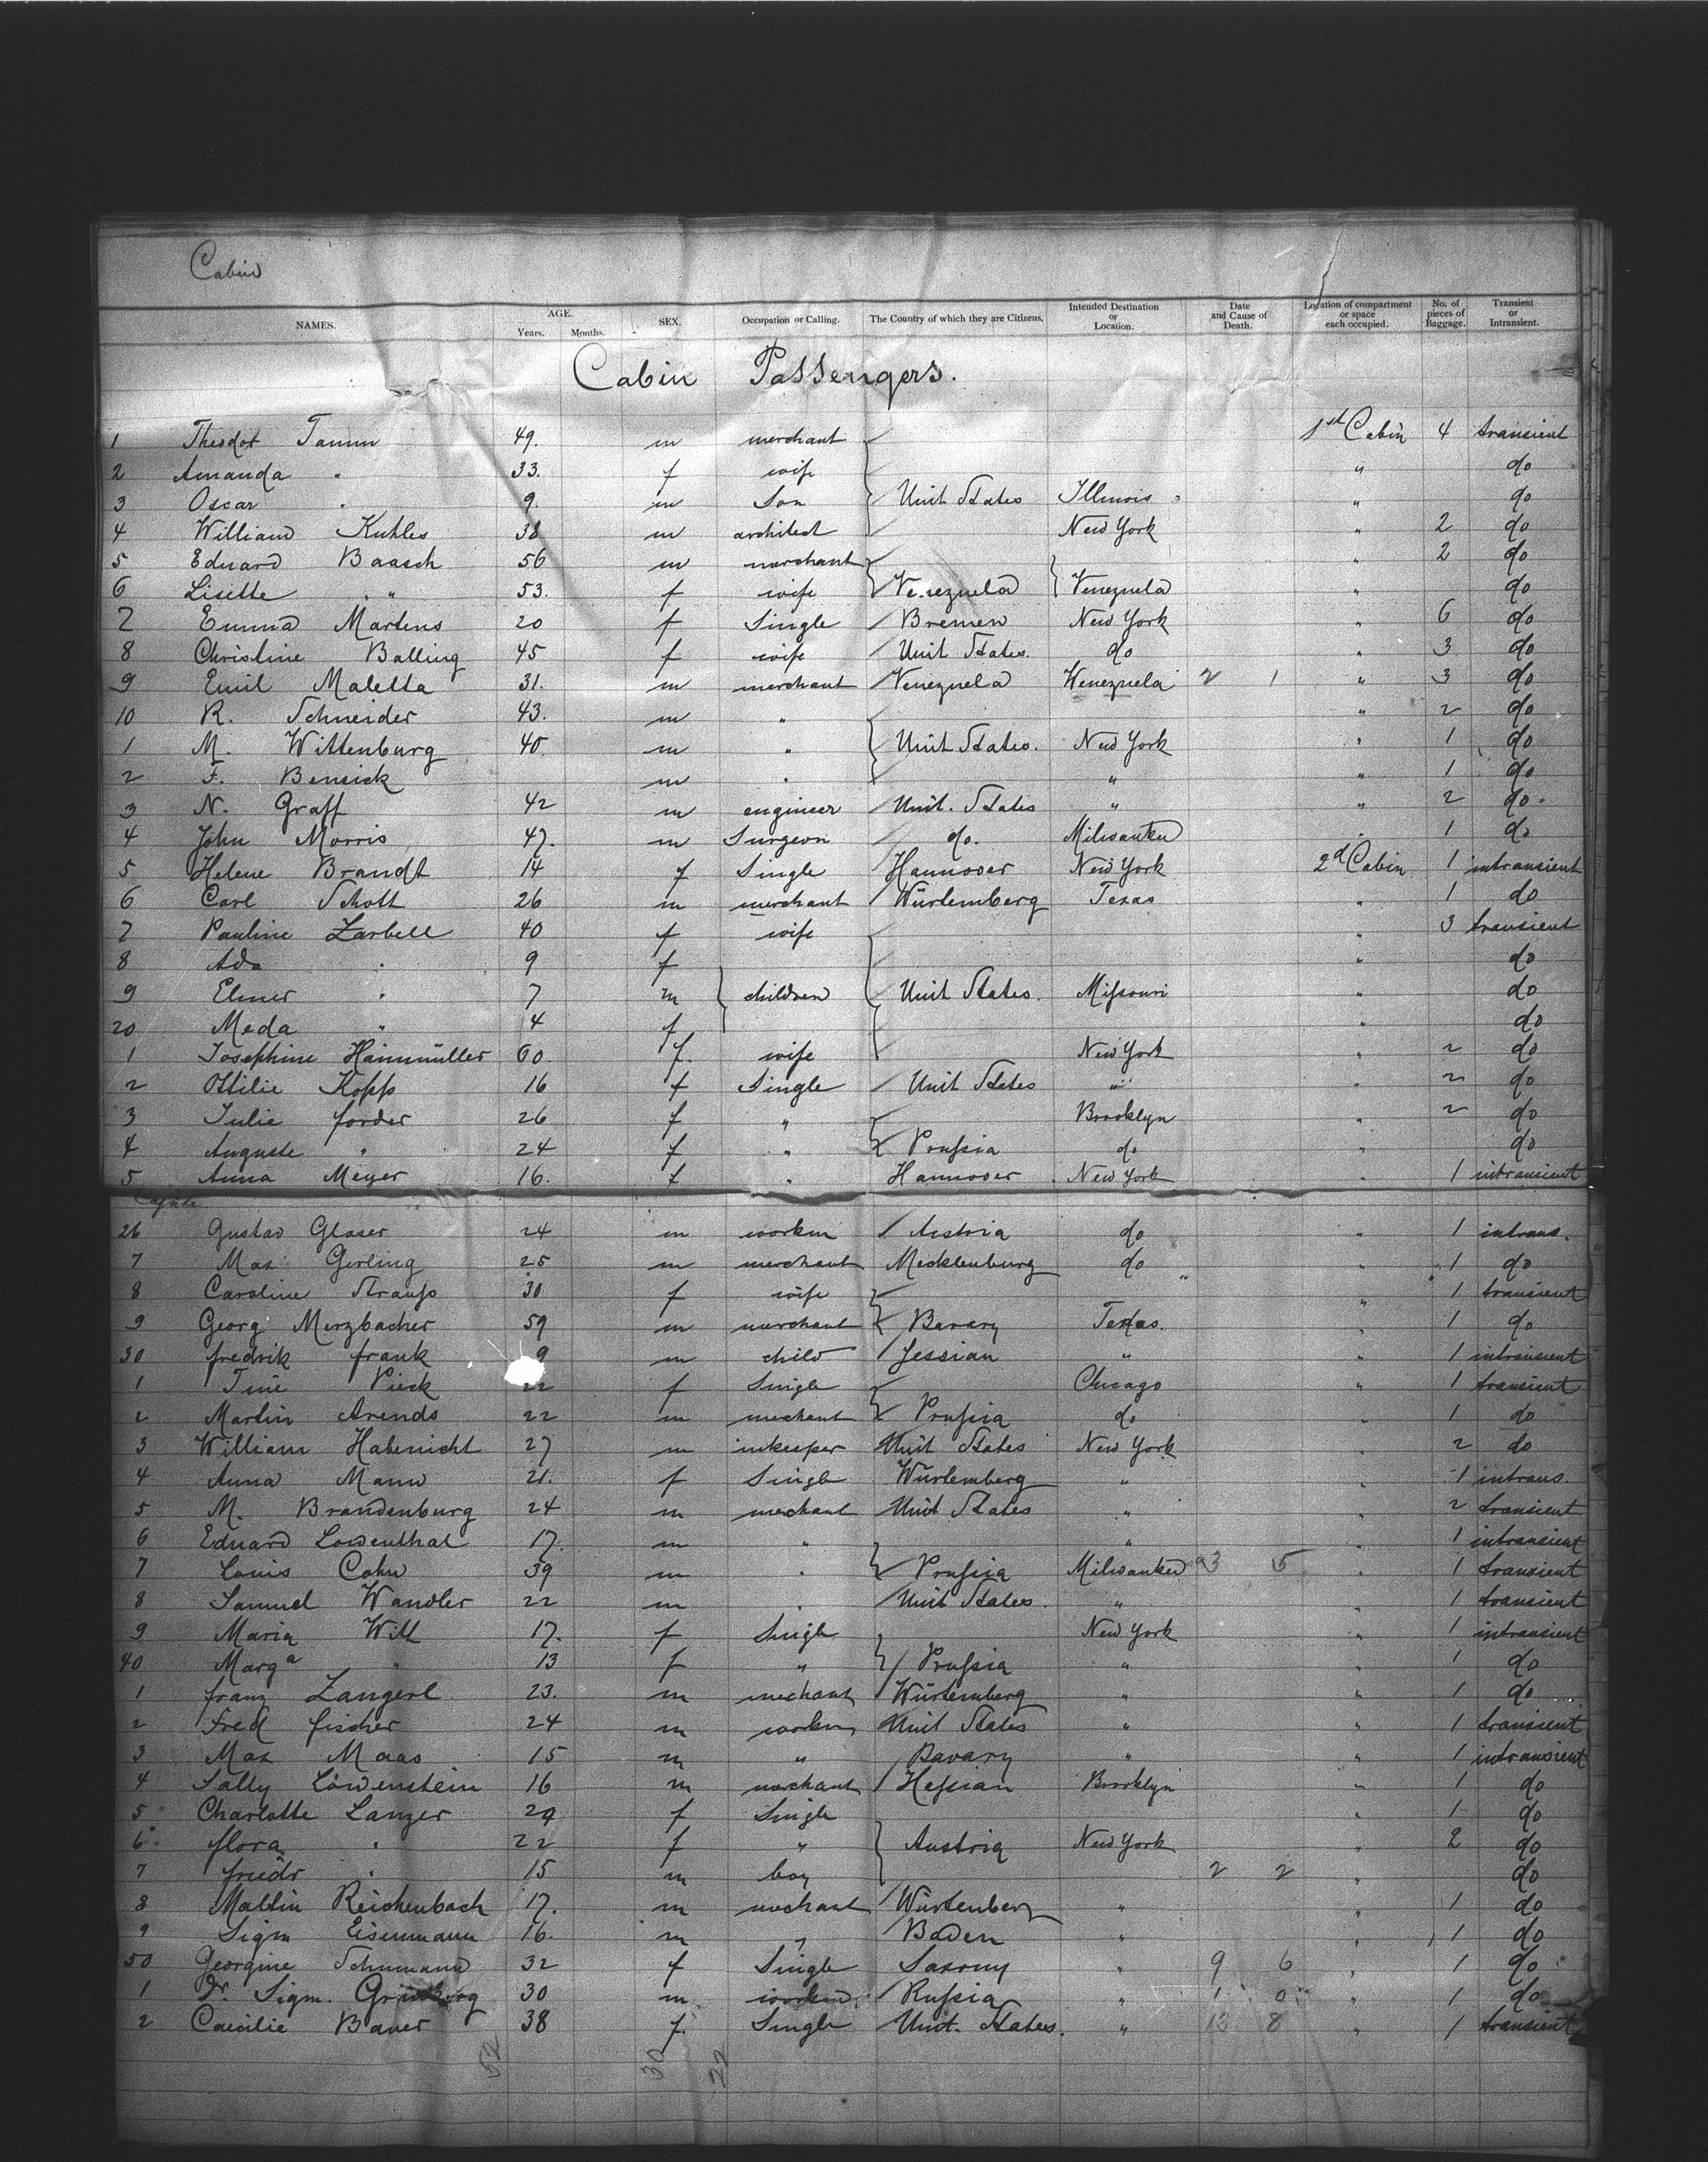 Cabin
NAMES. AGE. Years. Months. SEX. Occupation or Calling. The Country of which they are Citizens. Intended Destination or Location. Date and Cause of Death. Location of compartment or space each occupied. No. of pieces of Baggage. Transient or Intransient.
Cabin Passengers.
1 Theodor Tamm 49. m merchant 1st Cabin 4 transient
2 Amanda " 33. f wife " do
3 Oscar " 9. m Son Unit States Illinois " do
4 William Kuhles 38 m architect New York " 2 do
5 Eduard Baasch 56 m merchant " 2 do
6 Lisette " 53. f wife Venezuela Venezuela " do
7 Emma Martens 20 f Single Bremen New York " 6 do
8 Christine Balling 45 f wife Unit States. do " 3 do
9 Emil Maletta 31. m merchant Venezuela Venezuela 2 1 " 3 do
10 R. Schneider 43. m " " 2 do
1 M. Wittenburg 40. m " Unit States. New York " 1 do
2 F. Bensick m " " " 1 do
3 N. Graff 42 m engineer Unit. States " " 2 do.
4 John Morris 47. m Surgeon do. Milwaukee " 1 do
5 Helene Brandt 14 f Single Hannover New York 2d Cabin 1 intransient
6 Carl Schott 26 m merchant Würtemberg Texas " 1 do
7 Pauline Zarbell 40 f wife " 3 transient
8 Ada " 9 f " do
9 Elmer " 7 m children Unit States. Missouri " do
20 Meda " 4 f " do
1 Josephine Hainmüller 60. f. wife New York " 2 do
2 Ottilie Kopp 16 f Single Unit States " " 2 do
3 Julie forder 26 f " Brooklyn " 2 do
4 Auguste " 24 f " Prussia do " do
5 Anna Meyer 16. f " Hannover New York " 1 intransient
26 Gustav Glaser 24 m workm Austria do " 1 intrans.
7 Max Gerling 25 m merchant Mecklenburg do " 1 do
8 Caroline Strauss 30 f wife " " 1 transient
9 Georg Merzbacher 59 m merchant Bavary Texas. " 1 do
30 fredrik frank 9 m child Hessian " " 1 intransient
1 Tine Pieck 22 f Single Chicago " 1 transient
2 Martin Arends 22 m merchant Prussia do " 1 do
3 William Habenicht 27 m inkeeper Unit States New York " 2 do
4 Anna Mann 21. f Single Würtemberg " " 1 intrans.
5 M. Brandenburg 24 m merchant Unit States " " 2 transient
6 Eduard Lowenthal 17. m " " " 1 intransient
7 Louis Cohn 39 m " Prussia Milwaukee 23 15 " 1 transient
8 Samuel Wandler 22 m " Unit States. " " 1 transient
9 Maria Will 17. f Single New York " 1 intransient
40 Marga " 13 f " Prussia " " 1 do
1 franz Zangerl 23. m merchant Würtemberg " " 1 do
2 Fred fischer 24 m workm Unit States " " 1 transient
3 Max Maas 15 m " Bavary " " 1 intransient
4 Sally Löwenstein 16 m merchant Hessian Brooklyn " 1 do
5 Charlotte Langer 29 f Single " 1 do
6 flora " 22 f " Austria New York " 2 do
7 friedr " 15 m boy 2 2 " do
8 Reichenbach 17. m merchant Würtenberg " " 1 do
9 Sigm Eisenmann 16. m " Baden " " 1 do
50 Georgine Schumann 32 f Single Saxony " 9 6 " 1 do
1 Dr. Sigm. 30 m workm. Russia " 1 0 " 1 do
2 Caecilie Bauer 38 f. Single Unit. States. " 13 8 " 1 transient
52 30 22